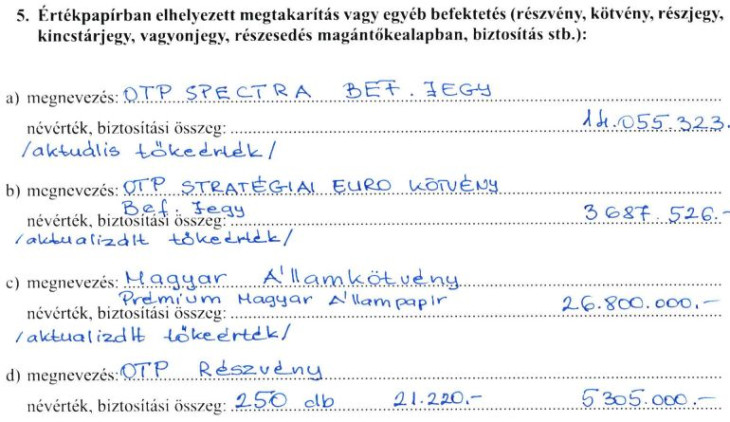 5. Értékpapírban elhelyezett megtakarítás vagy egyéb befektetés (részvény, kötvény, részjegy,
kincstárjegy, vagyonjegy, részesedés magántőkealapban, biztosítás stb.):
a) megnevezés: OTP SPECTRA BEF. JEGY
névérték, biztosítási összeg: 14.055.323.
/aktuális tőkeérték/
b) megnevezés: OTP STRATÉGIAI EURO KÖTVÉNY
Bef. Jegy
névérték, biztosítási összeg: 3 687. 526.-
/aktualizált tőkeérték/
c) megnevezés: Magyar Államkötvény
Prémium Magyar Állampapír
névérték, biztosítási összeg: 26.800.000.-
/aktualizált tőkeérték/
d) megnevezés: OTP Részvény
névérték, biztosítási összeg: 250 db 21.220.- 5 305.000.-